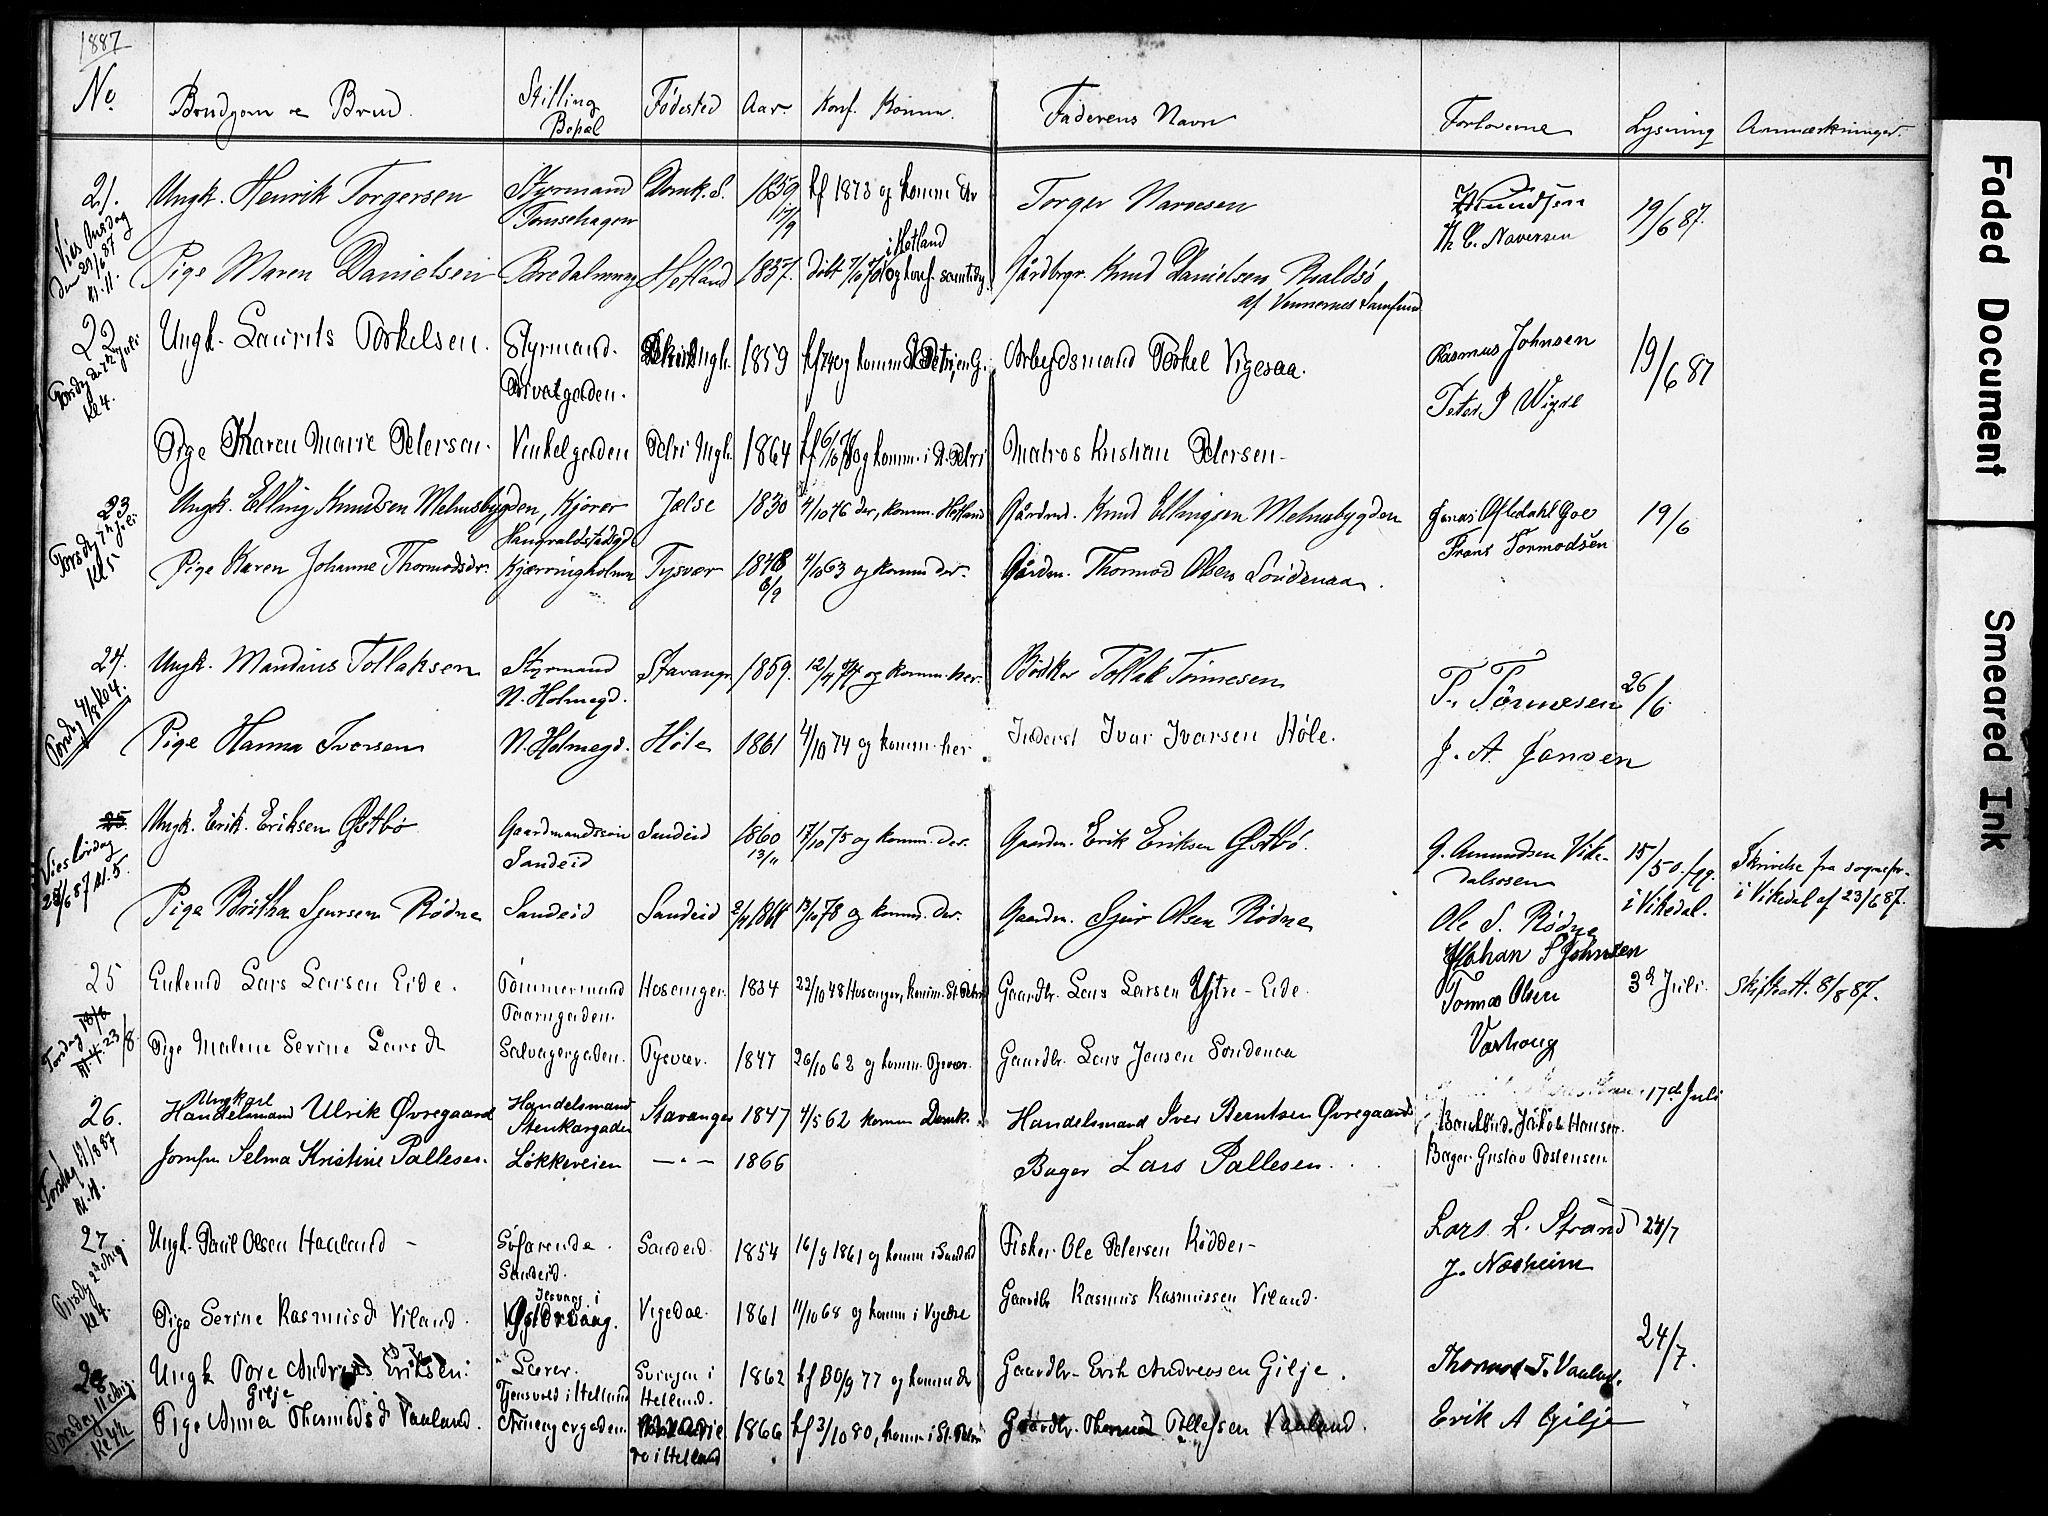 1887
No. Brudgom og Brud. Stilling Bopæl Fødested Aar. Konf. Komm. Faderens Navn Forloverne Lysning Anmærkninger.
21. Ungk. Henrik Torgersen Styrmand Domk. S. 1859 17/9 kf 1873 og komm. Torger Narvesen Th C. Naversen 19/6 87.
Vies Onsdag den 29/6 87 kl. 11.
Pige Maren Danielsen Bredalmvng Hetland 1857. døbt og konf. samtidig i Hetland Gårdbgr. Knud Danielsen Roaldsø
af Vennernes Samfund
22 Ungk. Laurits Torkelsen. Styrmand. 1859 kf 74 og komm. Arbeydsmand Torkel Vigesaa. Rasmus Johnsen 19/6 87
Torsdag den 7de Juli Kl 4.
Privatgaden. Peter P Wigdel
Pige Karen Marie Petersen. Vinkelgaden Petri Mgh. 1864 og komm. i St. Petri Matros Kristian Petersen
23 Ungk. Elling Knudsen Melhusbygden, Kjører Jelse 1830 4/10 46 der, komm. Hetland Gårdmd. Knud Ellingsen Melhusbygden Jonas Ofstedahl Goe 19/6
Torsdag 7de Juli Kl 5
Haugvaldstadsgd. Frans Tormodsen
Pige Karen Johanne Thormodsdr. Kjærringholmen Tysvær 1848 8/9 4/10 63 og komm. der. Gårdm. Thormod Olsen Sørdenaa.
24. Ungk. Mandius Tollaksen Styrmand Stavanger 1859. og komm. her. Bødker Tollak Tønnesen T. Tönnesen 26/6
Torsdag 4/8 Kl 4.
N. Holmegd.
Pige Hanna Iversen N. Holmegd. Høle 1861 4/10 74 og komm. her Inderst Ivar Ivarsen Høle. J. A. Jansen
25. Ungk. Erik Eriksen Østbø Gaardmandssøn Sandeid 1860 13/11 17/10 75 og komm. der. Gaardm. Erik Eriksen Østbø. G. Amundsen Vike- 15/5 o. fgg. Skrivelse fra sognepr.
Vies Lørdag 25/6 87 kl. 5.
Sandeid dalsosen i Vikedal. i Vikedal af 23/6 87.
Pige Birtha Sjursen Rødne Sandeid Sandeid 13/10 78 og komm. der. Gaardm. Sjur Olsen Rødne Ole S. Rødne
25 Enkemd Lars Larsen Eide. Tømmermand Hosanger. 1834 22/10 48 Hosanger, komm. St. Petri Gaardbr. Lars Larsen Ytre-Eide. Johan S Johnsen 3d Juli. Skifteatt. 8/8 87.
Torsdag 18/8 kl. 4. 23/8
Taarngaden. Tormod Olsen
Pige Malene Serine Larsd. Salvagergaden. Tysvær. 1847 26/10 62 og komm. Tysvær. Gaardbr. Lars Jensen Søndenaa Varhoug
26. Ungkarl Handelsmand Ulrik Øvregaard Handelsmand Stenkargaden Stavanger 1847 4/5 62 komm Domk. Handelsmand Iver Berntsen Øvregaard Jakob Hansen. 17de Juli
Torsdag 11/8 87 kl. 11.
Jomfru Selma Kristine Pallesen. Løkkeveien — " — 1866 Bager Lars Pallesen. Bager Gustav Torstensen
27 Ungk. Paul Olsen Haaland Søfarende. Sandeid. Sandeid. 1854 16/9 1861 og komm i Sandeid Fisker Ole Petersen Rødder Lars L. Strand 24/7
Torsdag 2d Aug. Kl 4. J. Næsheim
Pige Serine Rasmusd. Viland. Vigedal. 1861 11/10 68 og komm i Vigedal Gaardbr Rasmus Rasmussen Viland.
28 Ungk Tore Andreas Eriksen Gilje Lærer. Tjensvold i Hetland Svingen i Hetland. 1862 kf 30/9 77 og komm der Gaardbr. Erik Andreasen Gilje. Thormod T. Vaaland. 24/7.
Torsdag 11 Aug. Kl 4½
Pige Anna Thormodsd. Vaaland. i Hetland 1866 kf 3/10 80, komm i St. Petri Gaardbr. Thormod Tollefsen Vaaland. Erik A Gilje
Faded Document
Smeared Ink